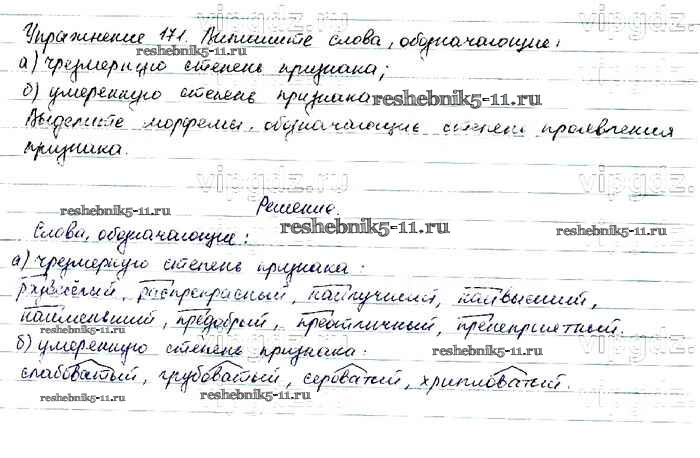 vipgdz.ru
vipgdz.ru
Упражнение 171. Выпишите слова, обозначающие:
reshebnik5-11.ru
а) чрезмерную степень признака;
б) умеренную степень признака
reshebnik5-11.ru
Выделите морфемы, обозначающие степень проявления
признака.
vipgdz.ru
vipgdz.ru
Решение.
reshebnik5-11.ru
reshebnik5-11.ru
reshebnik5-11.ru
Слова, обозначающие:
а) чрезмерную степень признака:
развесёлый, распрекрасный, наилучший, наивысший,
наименьший, предобрый, преотличный, пренеприятный.
б) умеренную степень признака:
reshebnik5-11.ru
vipgdz.ru
слабоватый, грубоватый, сероватый, хрипловатый.
reshebnik5-11.ru
reshebnik5-11.ru